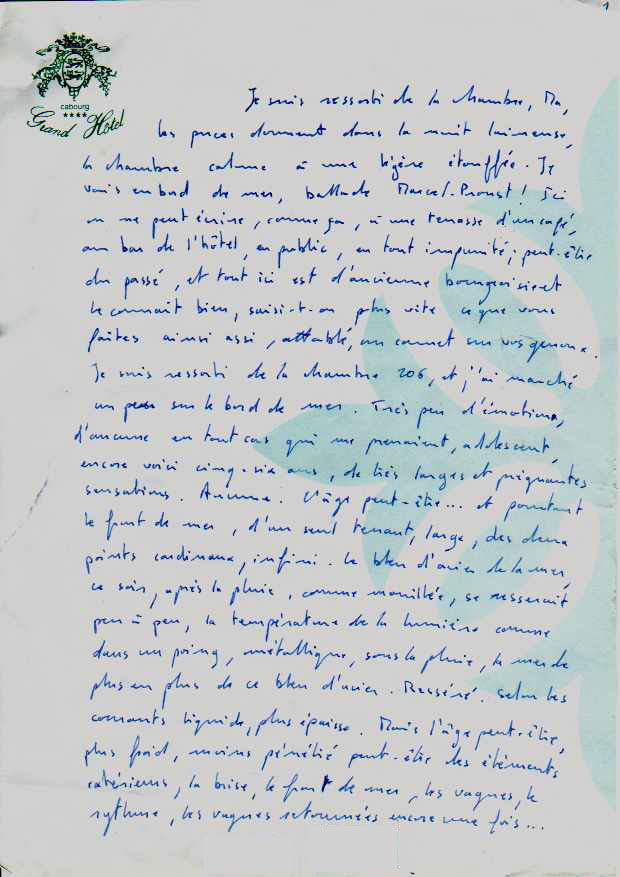 1
cabourg
Grand Hôtel
Je suis ressorti de la chambre, Ma,
les puces dorment dans la nuit laineuse,
la chambre calme à une légère étouffée. Je
vais en bord de mer, ballade Marcel-Proust! Ici
on ne peut écrire, comme ça, à une terrasse d'un café,
au bar de l'hôtel, en public, en tout impunité; peut-être
du passé, et tout ici est d'ancienne bourgeoisie et
le connait bien, saisi-t-on plus vite ce que vous
faites ainsi assi, attablé, un carnet sur vos genoux.
Je suis ressorti de la chambre 206, et j'ai marché
un peu sur le bord de mer. Très peu d'émotions,
d'aucune en tout cas qui me prenaient, adolescent,
encore voici cinq-six ans, de très larges et prégnantes
sensations. Aucune. L'âge peut-être... et pourtant
le front de mer, d'un seul tenant, large, des deux
points cardinaux, infini. Le bleu d'acier de la mer,
ce soir, après la pluie, comme mouillée, se resserait
peu à peu, la température de la lumière comme
dans un poing, métallique, sous la pluie, la mer de
plus en plus de ce bleu d'acier. Resséré. Selon les
courants liquide, plus épaisse. Mais l'âge peut-être,
plus froid, moins pénétré peut-être des éléments
extérieurs, la brise, le front de mer, les vagues, le
rythme, les vagues retournées encore une fois...